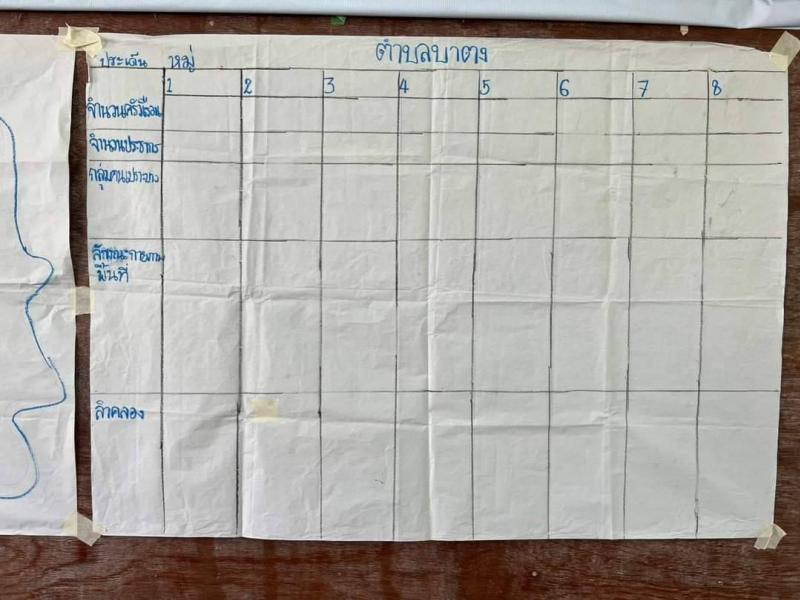 ตำบลบาตง
ประเด็น หมู่
1 2 3 4 5 6 7 8
จำนวนครัวเรือน
จำนวนประชากร
กลุ่มคนเปราะบาง
ลักษณะกายภาพ
พื้นที่
ลำคลอง